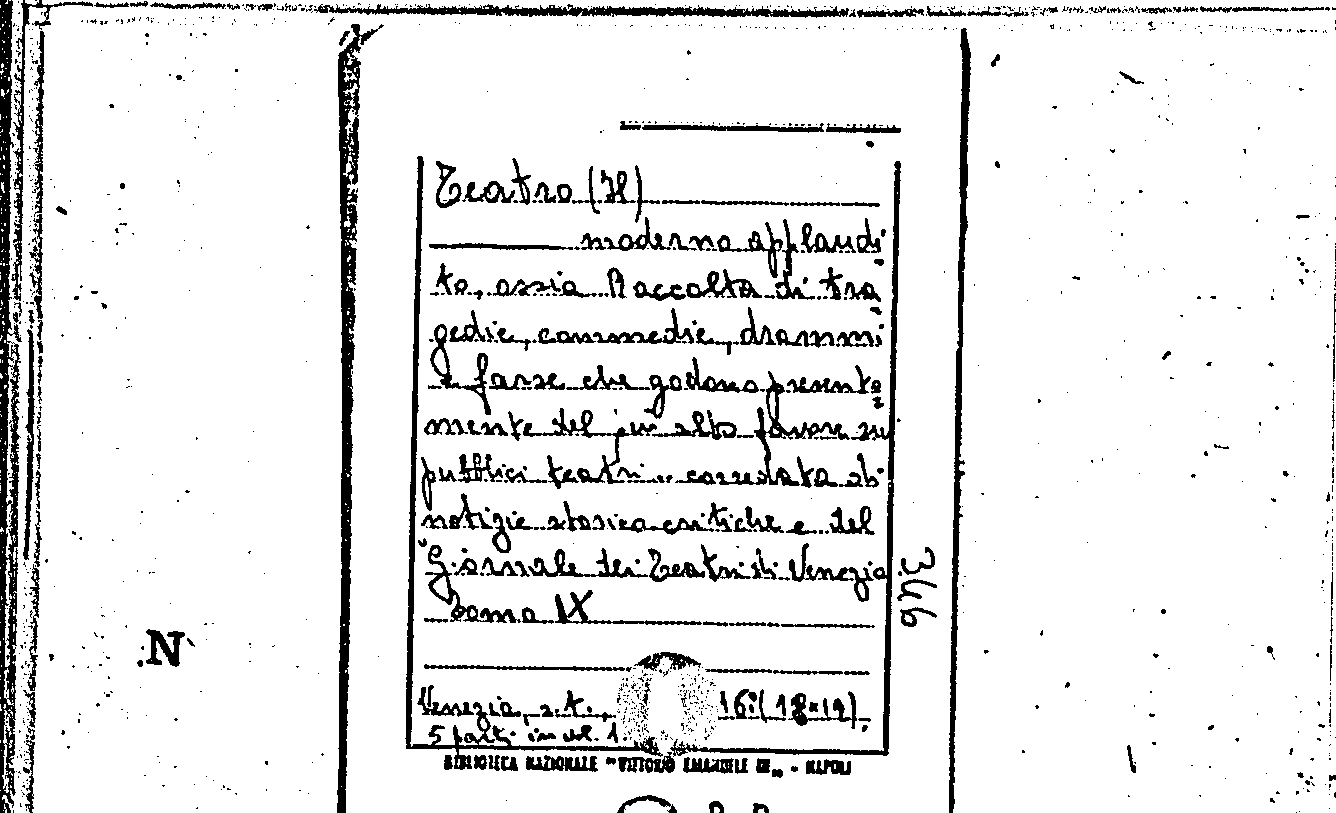 Teatro (Il)
moderno applaudi
to, ossia Raccolta di tra
gedie, commedie, drammi
e farse che godono presente
mente del più alto favore su
pubblici teatri .. corredata di
notizie storico critiche e del
Giornale dei Teatri di Venezia.
Tomo IX
346
N
Venezia, s.t., 16° (18×12).
5 parti in vol. 1.
BIBLIOTECA NAZIONALE "VITTORIO EMANUELE III" - NAPOLI